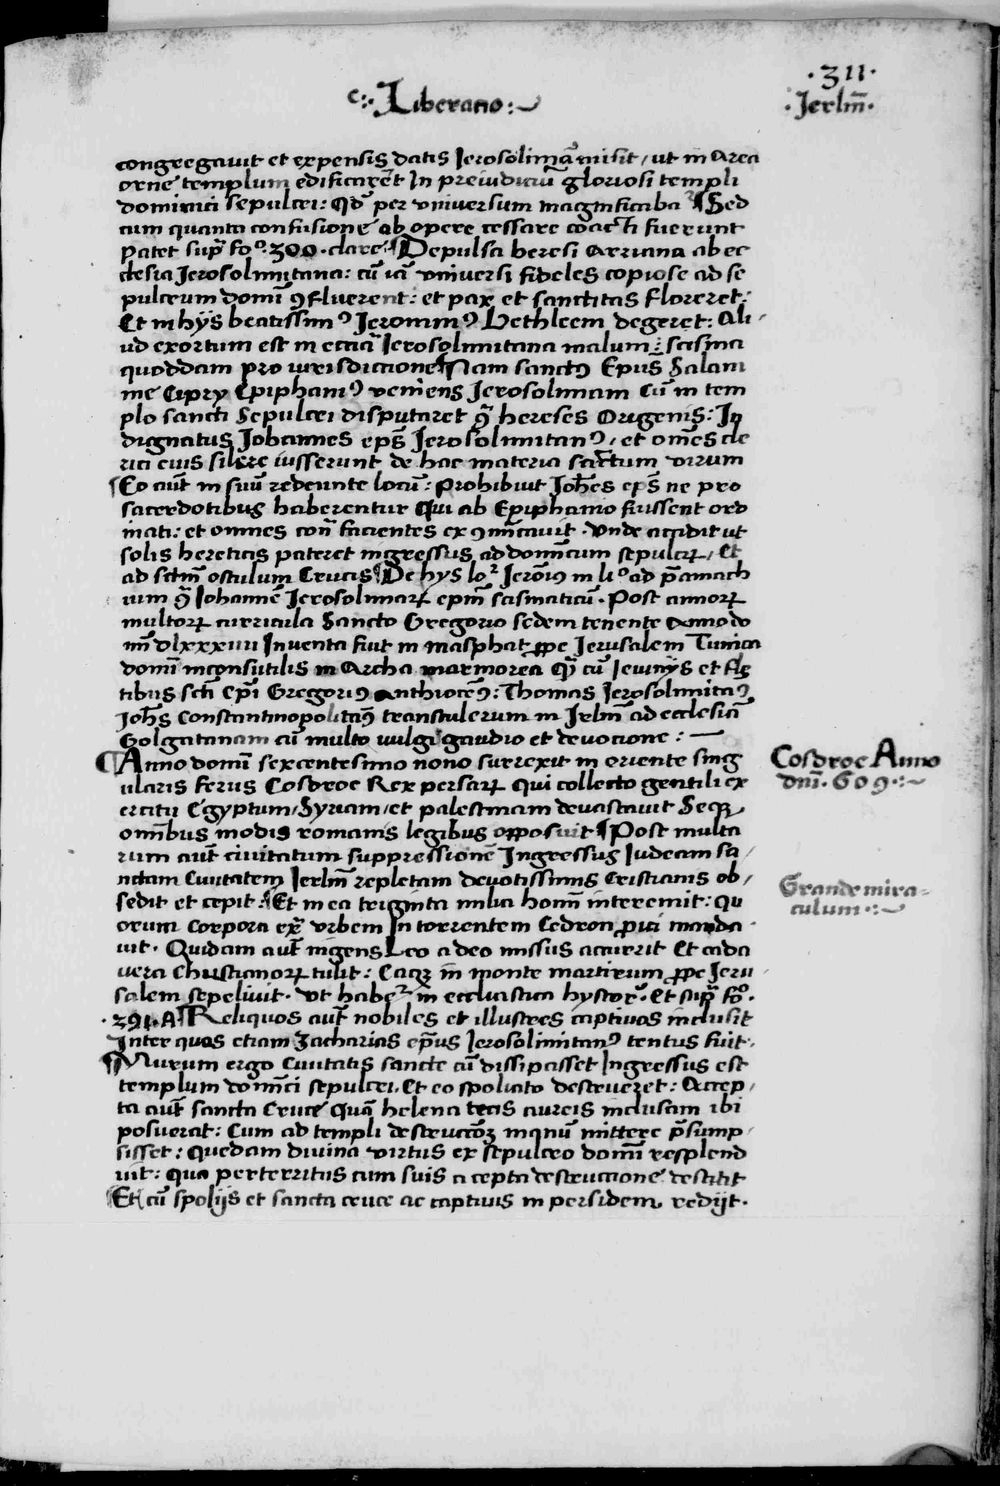 ·311·
c:·Liberatio:~
·Jerlm̄·
congregavit et expensis datis Jerosolimā misit / ut in Area
orne templum edificarēt In preiudiciū gloriosi templi
dominici sepulcri: Qd̄ per vniversum magnificaba² ¶Sed
cum quanta confusione ab opere cessare coacti fuerunt
patet sup̄ foº.300.clare ¶Depulsa heresi Arriana ab ec
clesia Jerosolimitana: cū iā vniversi fideles copiose ad se
pulcrum domī ꝯfluerent: et pax et sanctitas floreret:
Et in hÿs beatissimꝰ Jeronimꝰ Bethleem degeret: Ali-
ud exortum est in ecctīa Jerosolimitana malum: scisma
quoddam pro iurisdictione ¶Nam sanctꝰ Epūs Salam
ine Cipry Epiphaniꝰ veniens Jerosolimam Cū in tem
plo sancti Sepulcri disputaret ꝯ̄ hereses Origenis: In
dignatus Johannes epūs Jerosolimitanꝰ, et omēs cle
rici eius silere iusserunt de hac materia sanctum virum
¶Eo aūt in suū redeunte locū: Prohibuit Joh̄es epūs ne pro
sacerdotibus haberentur Qui ab Epiphanio fuissent ord
inati: et omnes con̄ facientes exꝯmūcauit. Vnde accidit ut
solis hereticis pateret ingressus ad domīcum sepulcꝝ, Et
ad sctm̄ osculum Crucis ¶De hys lo² Jerōiꝰ in liº ad pāmach
ium ꝯ̄ Iohannē Jerosolimaꝝ epm̄ scismaticū. Post annoꝝ
multoꝝ curricula Sancto Gregorio sedem tenente Anno do
mī Dlxxxiiii Inventa fuit in masphat ꝓpe Jerusalem Tunica
domī inconsutilis in Archa marmorea Qā cū Jeiunÿs et fle
tibus scti epī Gregoriꝰ Anthiocēꝰ: Thomas Jerosolimitaꝰ
Joh̄s Constantinopolitāꝰ transtulerunt in Jrlm̄ ad ecclesiā
Golgatanam cū multo uulgi gaudio et devocione: —
¶Anno domī sexcentesimo nono surrexit in oriente sing
ularis ferus Cosdroe Rex persaꝝ Qui collecto gentili ex
ercitu Egyptum, Syriam, et palestinam devastavit Seqꝫ
omībus modis romanis legibus opposuit ¶Post multa
rum aūt civitatum suppressionē Ingressus Judeam sa-
nctam Civitatem Jerlm̄ repletam devotissimis Cristianis ob-
sedit et cepit: Et in ea triginta milia homī interemit: Qu
orum Corpora ext̄ Vrbem In torrentem Cedron ꝓici manda
uit. Quidam aūt ingens Leo a deo missus accurrit Et cada
vera Christianoꝝ tulit: Eaqꝫ in monte martirum ꝓpe Jeru-
salem sepelivit. Vt habe² in eccliastica hystor̄. Et sup̄ foº.
·294.A. ¶Reliquos aūt nobiles et illustres captivos inclusit
Inter quos etiam Zacharias epūs Jerosolimitanꝰ tentus fuit.
¶Murum ergo Civitatis sancte cū dissipasset Ingressus est
templum domīci sepulcri. Et eo spoliato destrueret: Accep-
ta aūt sancta Cruce Quā helena tecis aureis inclusam ibi
posuerat: Cum ad templi destructiōꝫ manū mittere p̄sump-
sisset: Quedam divina virtus ex sepulcro domī resplend
uit: Qua perterritus cum suis a cepta destructione destitit
Et cū spolÿs et sancta cruce ac captivis in persidem redÿt.
Cosdroe Anno
dnī.609.:~
Grande mira=
culum.:~